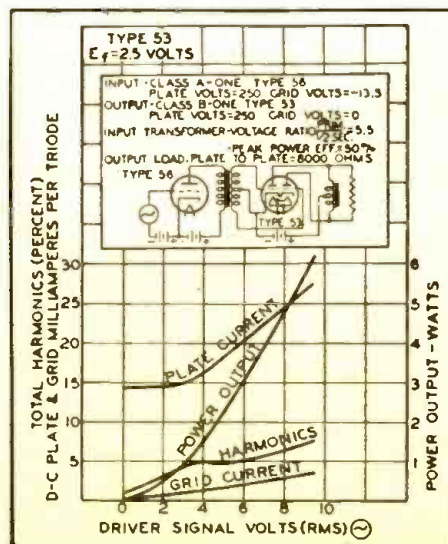 TYPE 53
Ef=2.5 VOLTS
INPUT-CLASS A-ONE TYPE 56
PLATE VOLTS=250 GRID VOLTS=-13.5
OUTPUT-CLASS B-ONE TYPE 53
PLATE VOLTS=250 GRID VOLTS=0
INPUT TRANSFORMER-VOLTAGE RATIO PRIM. 1/2 SEC. =5.5
-PEAK POWER EFF.=50%
OUTPUT LOAD, PLATE TO PLATE=8000 OHMS
TYPE 56
TYPE 53
TOTAL HARMONICS (PERCENT)
D-C PLATE & GRID MILLIAMPERES PER TRIODE
30
25
20
15
10
5
6
5
4
3
2
1
POWER OUTPUT-WATTS
PLATE CURRENT
POWER OUTPUT
HARMONICS
GRID CURRENT
0 2 4 6 8 10 12
DRIVER SIGNAL VOLTS (RMS)